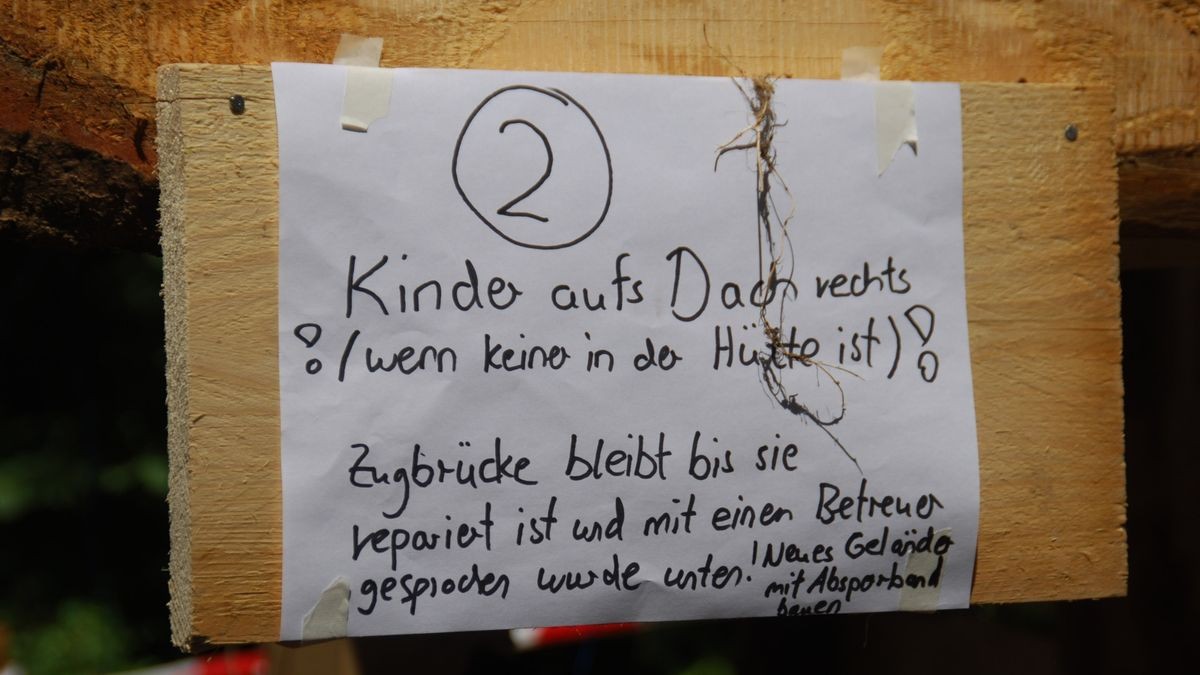 2
Kinder aufs Dach rechts
! (wenn keiner in der Hütte ist) !
Zugbrücke bleibt bis sie
repariert ist und mit einen Betreuer
gesprochen wurde unten.
! Neues Geländer
mit Absperrband
bauen